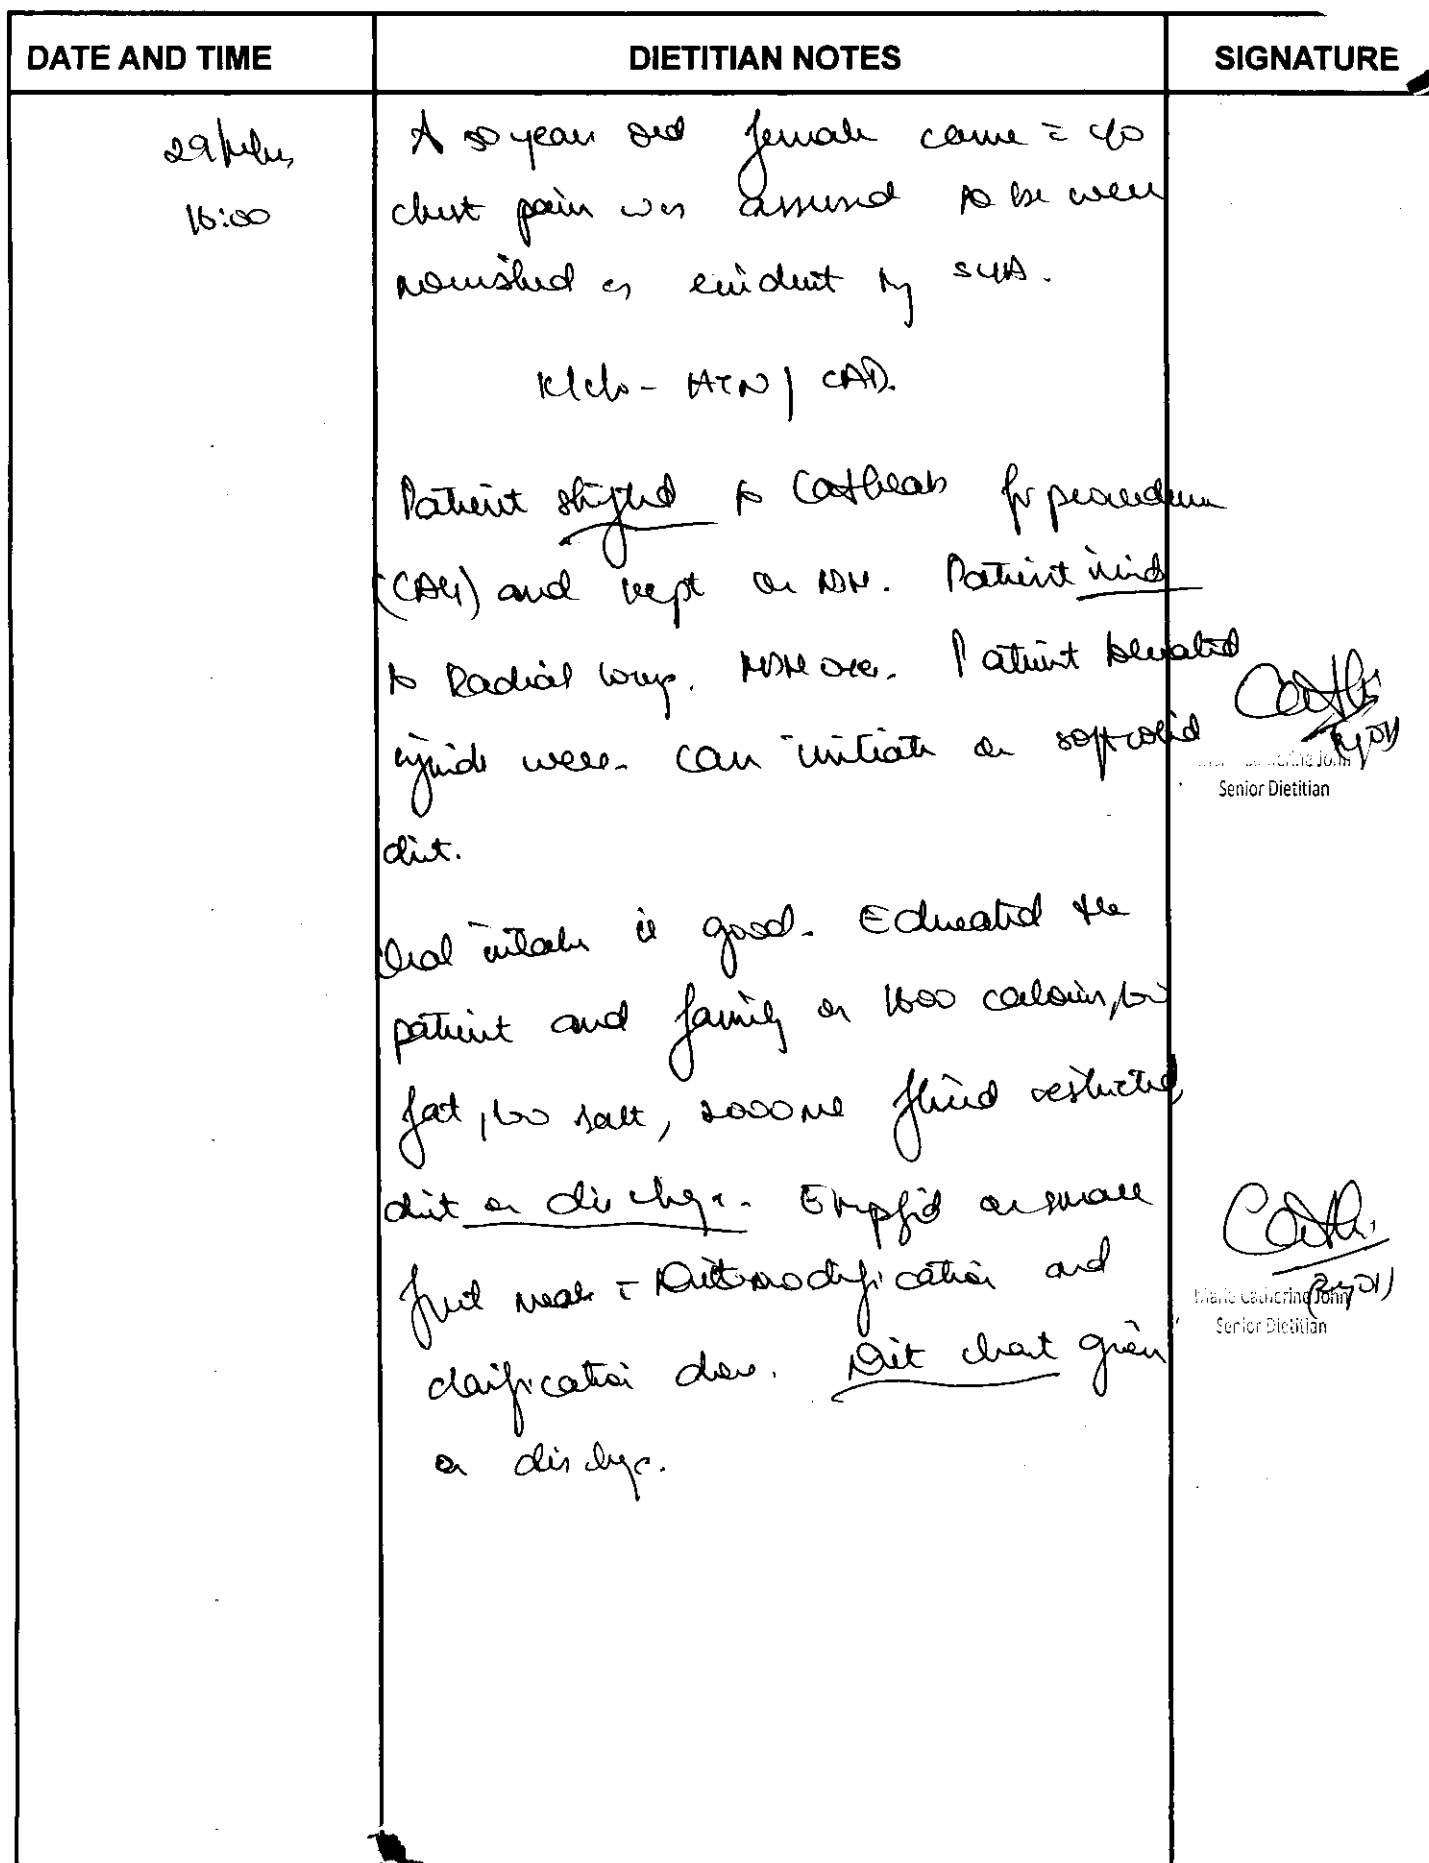 DATE AND TIME DIETITIAN NOTES SIGNATURE
29/
16:00
A 50 year old female came c̄ c/o
chest pain was assessed to be well
nourished as evident by SGA.
K/c/o - HTN / CAD.
Patient shifted to Cathlab for procedure
(CAG) and kept on NBM. Patient
to Radial loop. NBM over. Patient tolerated
liquids well. can initiate on soft solid
diet.
Oral intake is good. Educated the
patient and family on 1600 calories, low
fat, low salt, 2000ml fluid restricted
diet on dischge. on small
frqt meals c̄ Diet modification and
clarification done. Diet chart given
on dischge.
Cath
Catherine John
Senior Dietitian
Cath.
Marie Catherine John
Senior Dietitian